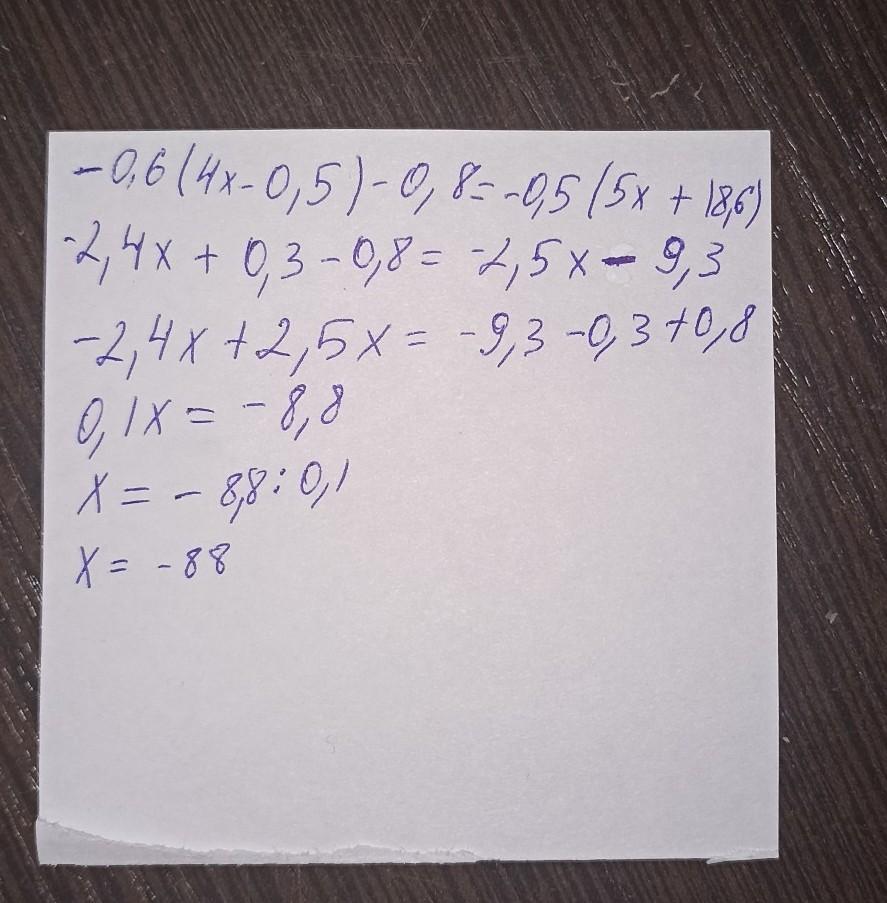 -0,6(4x-0,5)-0,8=-0,5(5x+18,6)
-2,4x+0,3-0,8=-2,5x-9,3
-2,4x+2,5x=-9,3-0,3+0,8
0,1x=-8,8
x=-8,8:0,1
x=-88